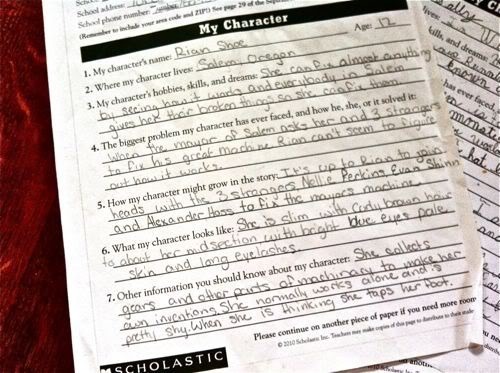 School address:
School phone number:
(Remember to include your area code and ZIP!) See page 29 of the
My Character
Age: 12
1. My character's name: Rian Shoe
2. Where my character lives: Salem, Oregon
3. My character's hobbies, skills, and dreams: She can fix almost anything
by seeing how it works and everybody in Salem
gives her their broken things so she can fix them
4. The biggest problem my character has ever faced, and how he, she, or it solved it:
When the mayor of Salem asks her and 3 strangers
to fix his great machine Rian can't seem to figure
out how it works.
5. How my character might grow in the story: It's up to Rian to join
heads with the 3 strangers, Nellie Perkins, Evan Skinn
and Alexander Hoss to fix the mayor's machine.
6. What my character looks like: She is slim with Curly brown hair
to about her midsection with bright blue eyes pale
skin and long eyelashes.
7. Other information you should know about my character: She collects
gears and other parts of machinary to make her
own inventions. She normally works alone and is
pretty shy. When she is thinking she taps her foot.
Please continue on another piece of paper if you need more room
© 2010 Scholastic Inc. Teachers may make copies of this page to distribute to their
SCHOLASTIC